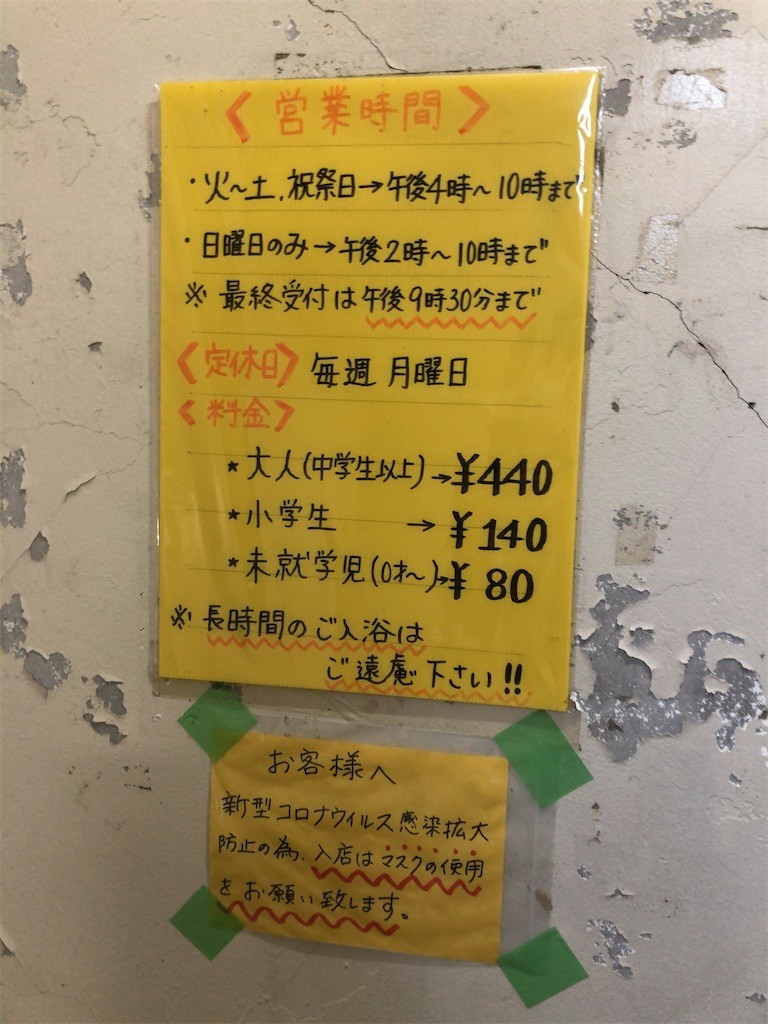 〈営業時間〉
・火〜土、祝祭日→午後4時〜10時まで
・日曜日のみ→午後2時〜10時まで
※最終受付は午後9時30分まで
〈定休日〉毎週 月曜日
〈料金〉
★大人(中学生以上)→¥440
★小学生→¥140
★未就学児(0才〜)→¥80
※長時間のご入浴は
ご遠慮下さい!!
お客様へ
新型コロナウイルス感染拡大
防止の為、入店はマスクの使用
をお願い致します。